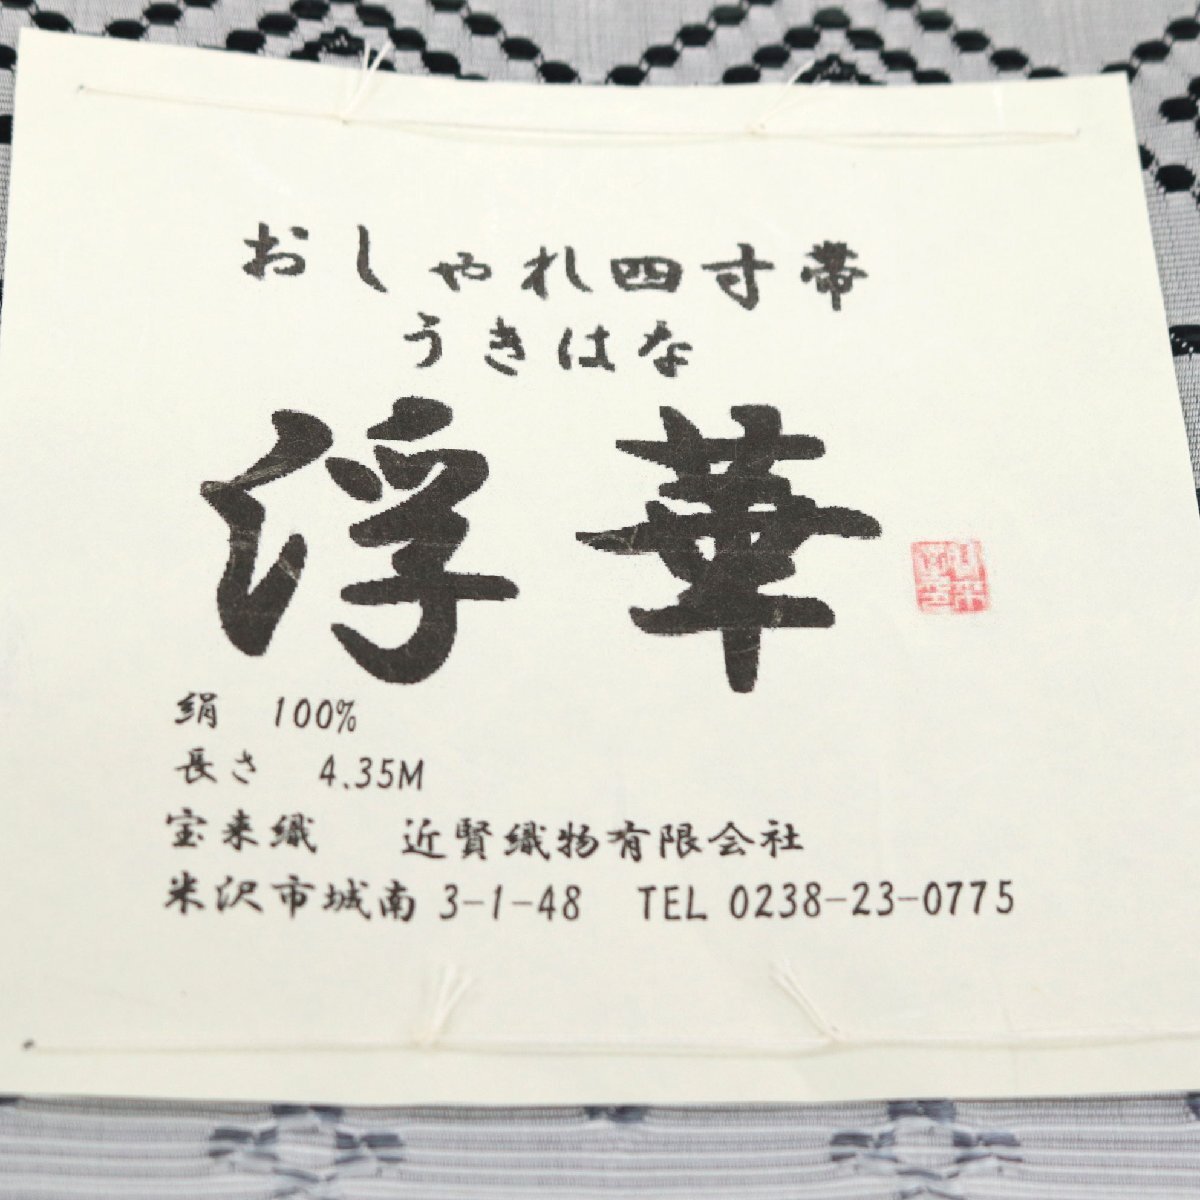 おしゃれ四寸帯
うきはな
浮華
絹 100%
長さ 4.35M
宝来織 近賢織物有限会社
米沢市城南 3-1-48 TEL 0238-23-0775